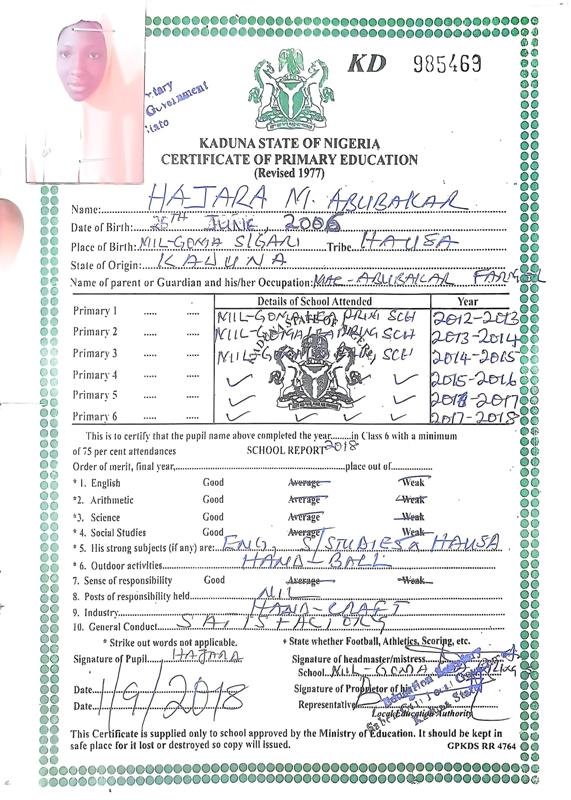 KD 985469
Government
KADUNA STATE OF NIGERIA
CERTIFICATE OF PRIMARY EDUCATION
(Revised 1977)
Name: HAJARA M. ABUBAKAR
Date of Birth: 25TH JUNE, 2006
Place of Birth: MIL-GOMA SIGARI Tribe HAUSA
State of Origin: KADUNA
Name of parent or Guardian and his/her Occupation: ABUBAKAR
Details of School Attended Year
Primary 1 ..... ..... 2012-2013
Primary 2 ..... ..... 2013-2014
Primary 3 ..... ..... 2014-2015
Primary 4 ..... ..... ✓ ✓ 2015-2016
Primary 5 ..... ..... ✓ ✓ -2017
Primary 6 ..... ..... ✓ ✓ ✓ ✓ 2017-2018
This is to certify that the pupil name above completed the year.........in Class 6 with a minimum
of 75 per cent attendances SCHOOL REPORT 2018
Order of merit, final year, place out of
* 1. English Good Average Weak
*2. Arithmetic Good Average Weak
*3. Science Good Average Weak
* 4. Social Studies Good Average Weak
* 5. His strong subjects (if any) are: ENG, S/STUDIES & HAUSA
* 6. Outdoor activities HAND-BALL
7. Sense of responsibility Good Average Weak
8. Posts of responsibility held NIL
9. Industry HAND-CRAFT
10. General Conduct SATISFACTORY
* Strike out words not applicable. * State whether Football, Athletics, Scoring, etc.
Signature of Pupil HAJARA Signature of headmaster/mistress
School
Date 1/9/2018 Signature of Proprietor of his
Date Representative
Local Education Authority
This Certificate is supplied only to school approved by the Ministry of Education. It should be kept in
safe place for it lost or destroyed so copy will issued. GPKDS RR 4764